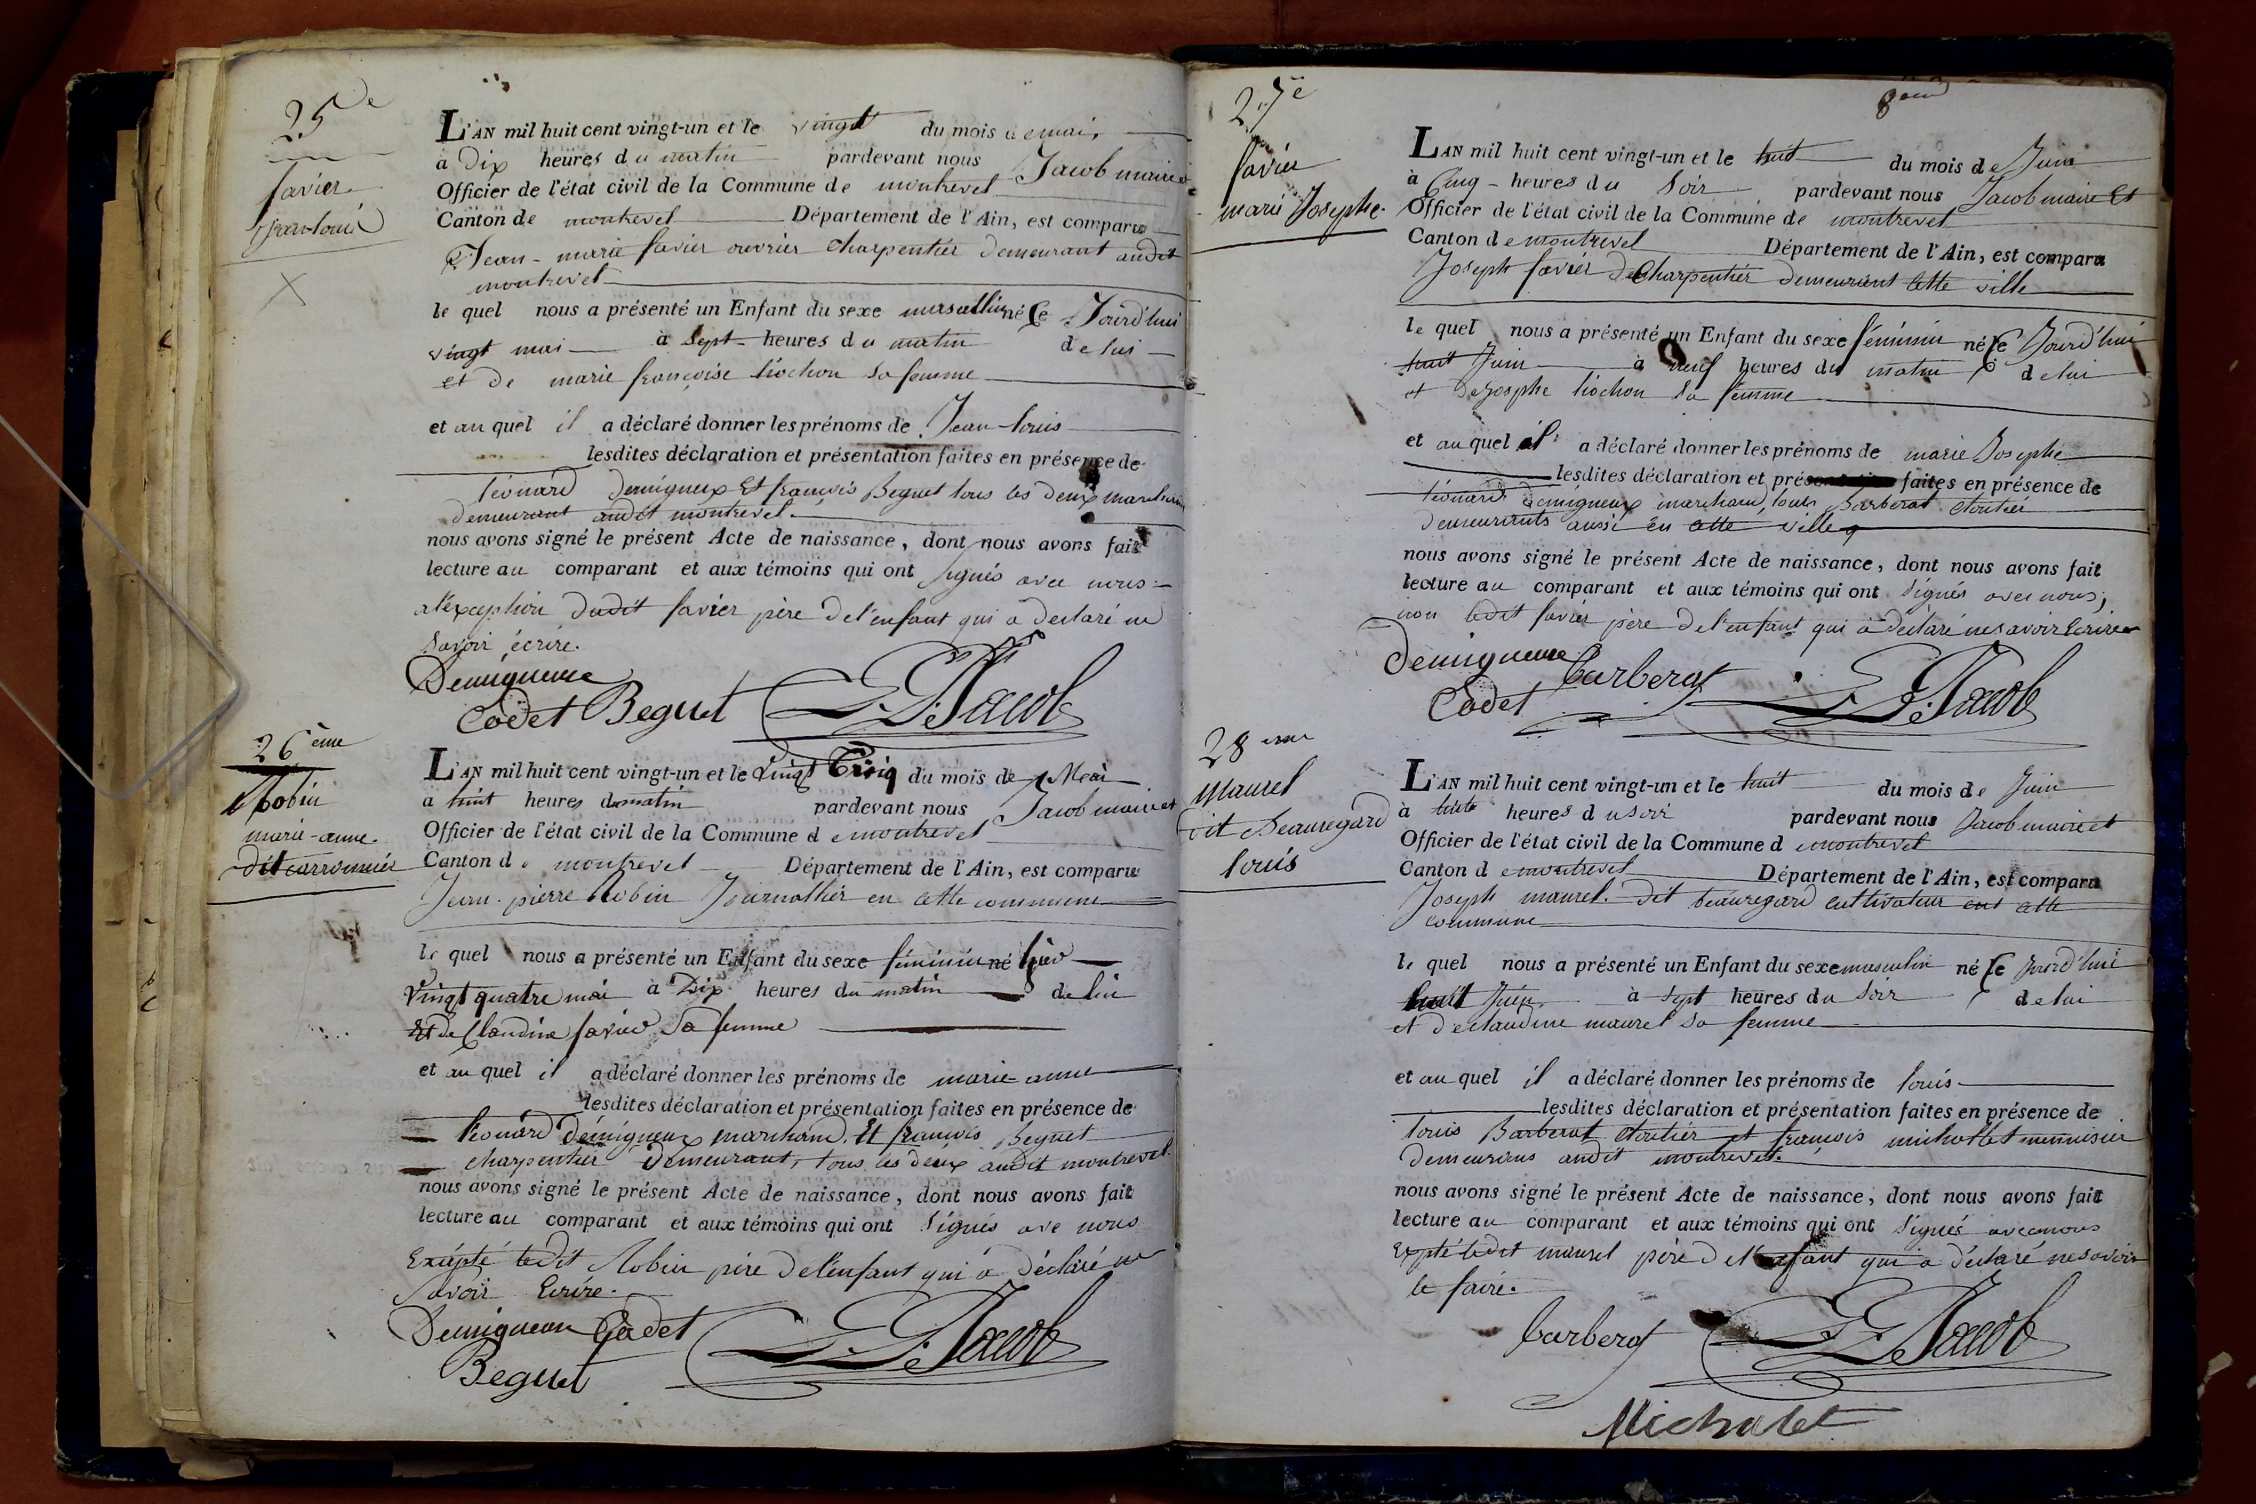 25e
favier
jean louis
L'AN mil huit cent vingt-un et le vingt du mois de mai,
à Dix heures du matin pardevant nous Jacob maire et
Officier de l'état civil de la Commune de montrevel
Canton de montrevel Département de l'Ain, est comparu
Jean-marie favier ouvrier charpentier demeurant audit
montrevel
le quel nous a présenté un Enfant du sexe masculin né Ce Jourd'hui
vingt mai à sept heures du matin de lui
et de marie françoise tiochon sa femme
et au quel il a déclaré donner les prénoms de Jean-louis
lesdites déclaration et présentation faites en présence de
léonard demigneux Et françois Beguet tous les deux
demeurant audit montrevel.
nous avons signé le présent Acte de naissance, dont nous avons fait
lecture au comparant et aux témoins qui ont signés avec nous
a l'exception dudit favier père de l'enfant qui a declaré ne
savoir écrire.
Demigneux
Cadet Beguet Jacob
26ème
Robin
marie-anne.
dit carronnier
L'AN mil huit cent vingt-un et le vingt Cinq du mois de Mai
à huit heures du matin pardevant nous Jacob maire et
Officier de l'état civil de la Commune de montrevel
Canton de montrevel Département de l'Ain, est comparu
Jean-pierre Robin Journallier en cette commune
le quel nous a présenté un Enfant du sexe féminin né hier
Vingt quatre mai à Dix heures du matin de lui
Et de Claudine favier Sa femme
et au quel il a déclaré donner les prénoms de marie anne
lesdites déclaration et présentation faites en présence de
léonard demigneux marchand, Et françois Beguet
charpentier demeurant, tous les deux audit montrevel.
nous avons signé le présent Acte de naissance, dont nous avons fait
lecture au comparant et aux témoins qui ont signés ave nous
Exépté ledit Robin père de l'enfant qui a déclaré ne
savoir Ecrire.
Demigneux Cadet Jacob
Beguet
8
27e
favier
marie Josephe.
L'AN mil huit cent vingt-un et le huit du mois de Juin
à Cinq heures du soir pardevant nous Jacob maire Et
Officier de l'état civil de la Commune de montrevel
Canton de montrevel Département de l'Ain, est comparu
Joseph favier charpentier demeurant cette ville
le quel nous a présenté un Enfant du sexe féminin né Ce Jourd'hui
huit Juin à neuf heures du matin de lui
et de Josephe tiochon sa femme
et au quel il a déclaré donner les prénoms de marie Josephe
lesdites déclaration et présentation faites en présence de
léonard demigneux marchand, louis Barberat cloutier
demeurants aussi en cette ville
nous avons signé le présent Acte de naissance, dont nous avons fait
lecture au comparant et aux témoins qui ont signés avec nous,
non ledit favier père de l'enfant qui a déclaré ne savoir Ecrire
Demigneux Barberat
Cadet Jacob
28eme
maurel
dit Beauregard
louis
L'AN mil huit cent vingt-un et le huit du mois de Juin
à huit heures du soir pardevant nous Jacob maire et
Officier de l'état civil de la Commune de montrevel
Canton de montrevel Département de l'Ain, est comparu
Joseph maurel dit beauregard cultivateur en cette
commune
le quel nous a présenté un Enfant du sexe masculin né Ce Jourd'hui
huit Juin à sept heures du soir de lui
et de claudine maurel sa femme
et au quel il a déclaré donner les prénoms de louis
lesdites déclaration et présentation faites en présence de
louis Barberat cloutier et françois michallet menuisier
demeurans audit montrevel.
nous avons signé le présent Acte de naissance, dont nous avons fait
lecture au comparant et aux témoins qui ont signés avec nous
expté ledit maurel père de l'enfant qui a déclaré ne savoir
le faire.
Barberat Jacob
Michalet